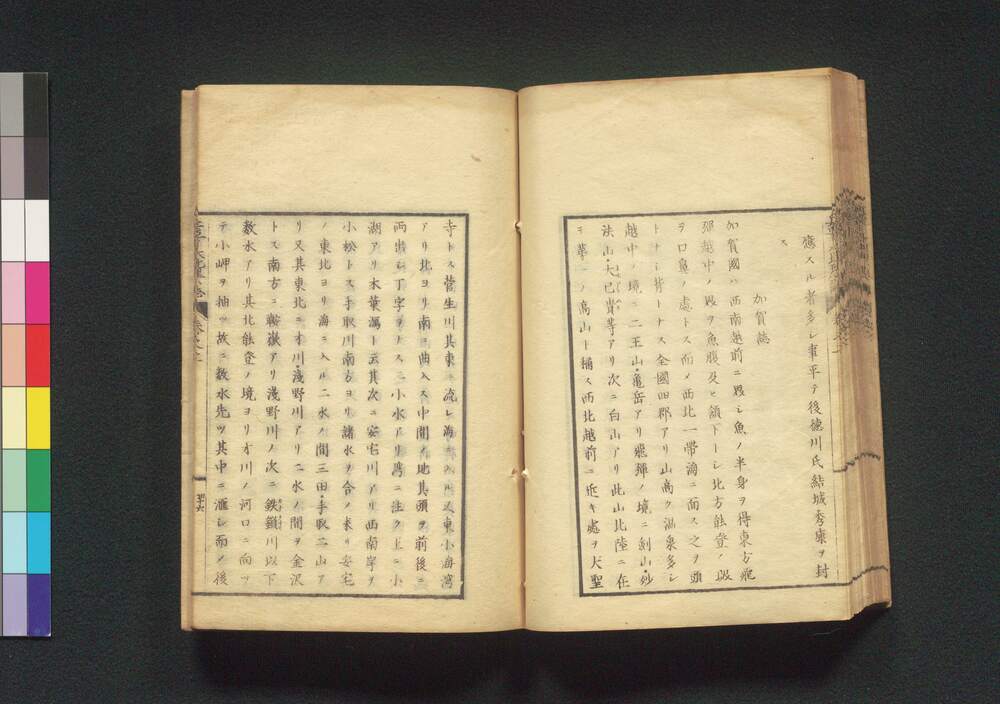 應スル者多シ事平テ後德川氏結城秀康ヲ封
ス
加賀誌
加賀國ハ西南越前ニ界シ魚ノ半身ヲ得東方飛
彈越中ノ界ヲ魚腹及ヒ領下トシ北方能登ノ界
ヲ口鼻ノ處トス而メ西北一帶海ニ面ス之ヲ頭
トナシ背トナス全國四郡アリ山高ク温泉多シ
越中ノ境ニ二王山・龜岳アリ飛彈ノ境ニ劍山・妙
法山・大已貴等アリ次ニ白山アリ此山北陸ニ在
テ第一ノ高山ト稱ス西北越前ニ近キ處ヲ大聖
寺トス菅生川其東ニ流レ海ニ入ル又東小海灣
アリ北ヨリ南ニ曲入ス中間ノ地其頭ヲ前後ニ
両出シ丁字ヲナス二小水アリ灣ニ注ク上ニ小
湖アリ木葉潟ト云其次ニ安宅川アリ西南岸ヲ
小松トス手取川南方ヨリ諸水ヲ合ノ来リ安宅
ノ東北ヨリ海ニ入ル二水ノ間三田・手取二山ア
リ又其東北ニオ川・淺野川アリ二水ノ間ヲ金沢
トス南方ニ鞍嶽アリ淺野川ノ次ニ鉄鎖川以下
数水アリ其北能登ノ境ヨリオ川ノ河口ニ向ツ
テ小岬ヲ抽ツ故ニ数水先ツ其中ニ滙シ而ノ後